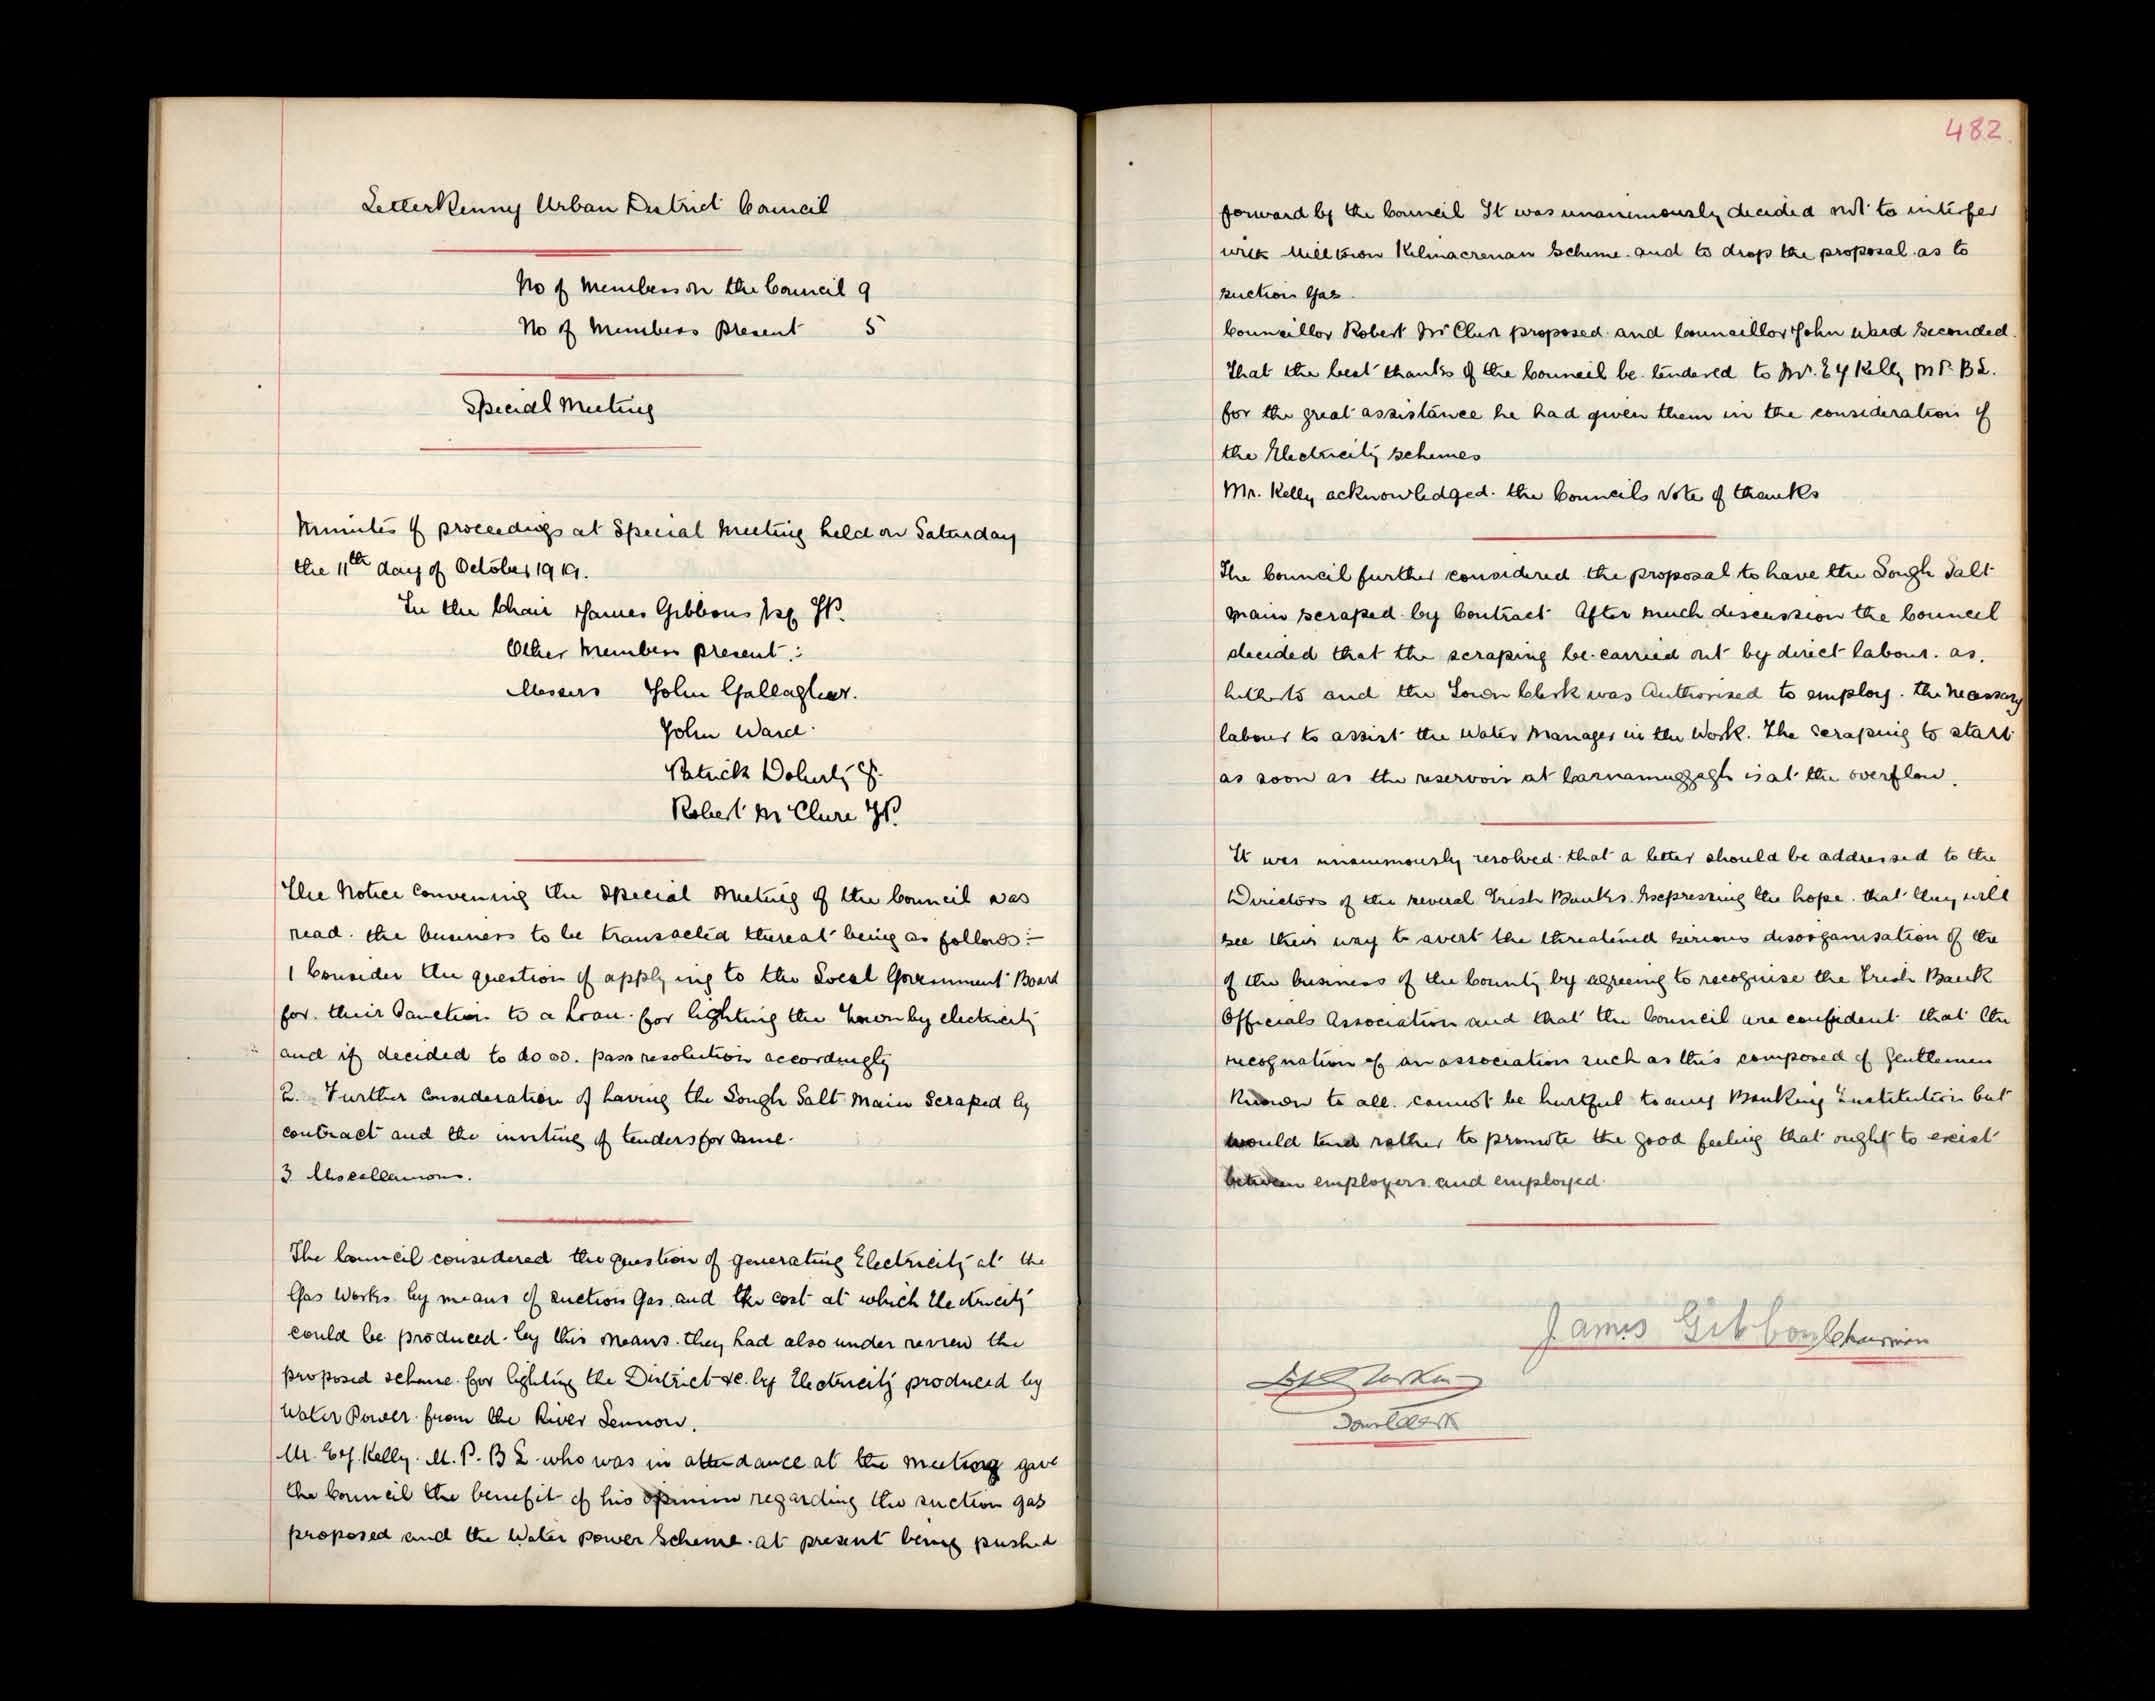 LetterKenny Urban District Council
No of Members on the Council 9
No of Members Present 5
Special Meeting
Minutes of proceedings at Special Meeting held on Saturday
the 11th day of October 1919.
In the Chair James Gibbons Esq JP.
Other Members present :-
Messers John Gallagher.
John Ward.
Patrick Doherty
Robert Mc Clure JP.
The Notice Convening the Special Meeting of the Council was
read. the business to be transacted thereat being as follows :-
1 Consider the question of applying to the Local Government Board
for their Sanction to a Loan for lighting the Town by electricity
and if decided to do so. pass resolution accordingly
2. Further Consideration of having the Lough Salt Main Scraped by
contract and the inviting of tenders for same.
3 Miscellaneous.
The Council considered the question of generating Electricity at the
Gas Works by means of suction Gas and the cost at which Electricity
could be produced by this means. they had also under review the
proposed scheme for lighting the District &c. by Electricity produced by
Water Power from the River Lennon.
Mr. E J Kelly. M. P. B L who was in attendance at the meeting gave
the Council the benefit of his opinion regarding the suction gas
proposed and the Water power Scheme at present being pushed
482.
forward by the Council It was unanimously decided not to interfer
with Milltown Kilmacrenan Scheme and to drop the proposal as to
suction Gas
Councillor Robert Mc Clure proposed and Councillor John Ward Seconded.
That the best thanks of the Council be tendered to Mr. E J Kelly M P. B L.
for the great assistance he had given them in the consideration of
the Electricity schemes
Mr. Kelly acknowledged. the Councils Vote of thanks
The Council further considered the proposal to have the Lough Salt
main scraped by Contract After much discussion the Council
decided that the scraping be carried out by direct labour. as.
hitherto and the Town Clerk was Authorised to employ. the necessary
labour to assist the Water Manager in the Work. The scraping to start
as soon as the reservoir at is at the overflow.
It was unanimously resolved that a letter should be addressed to the
Directors of the several Irish Banks. Expressing the hope. that they will
see their way to avert the threatened serious disorganisation of the
of the business of the County by agreeing to recognise the Irish Bank
Officials Association and that the Council are confident that the
recognation of an association such as this composed of Gentlemen
Known to all. cannot be hurtful to any Banking Institution but
would tend rather to promote the good feeling that ought to exist
between employers and employed.
James Gibbons Chairman
Town Clerk